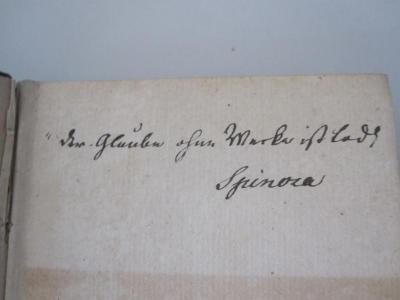 "der Glaube ohne Werke ist todt
Spinoza